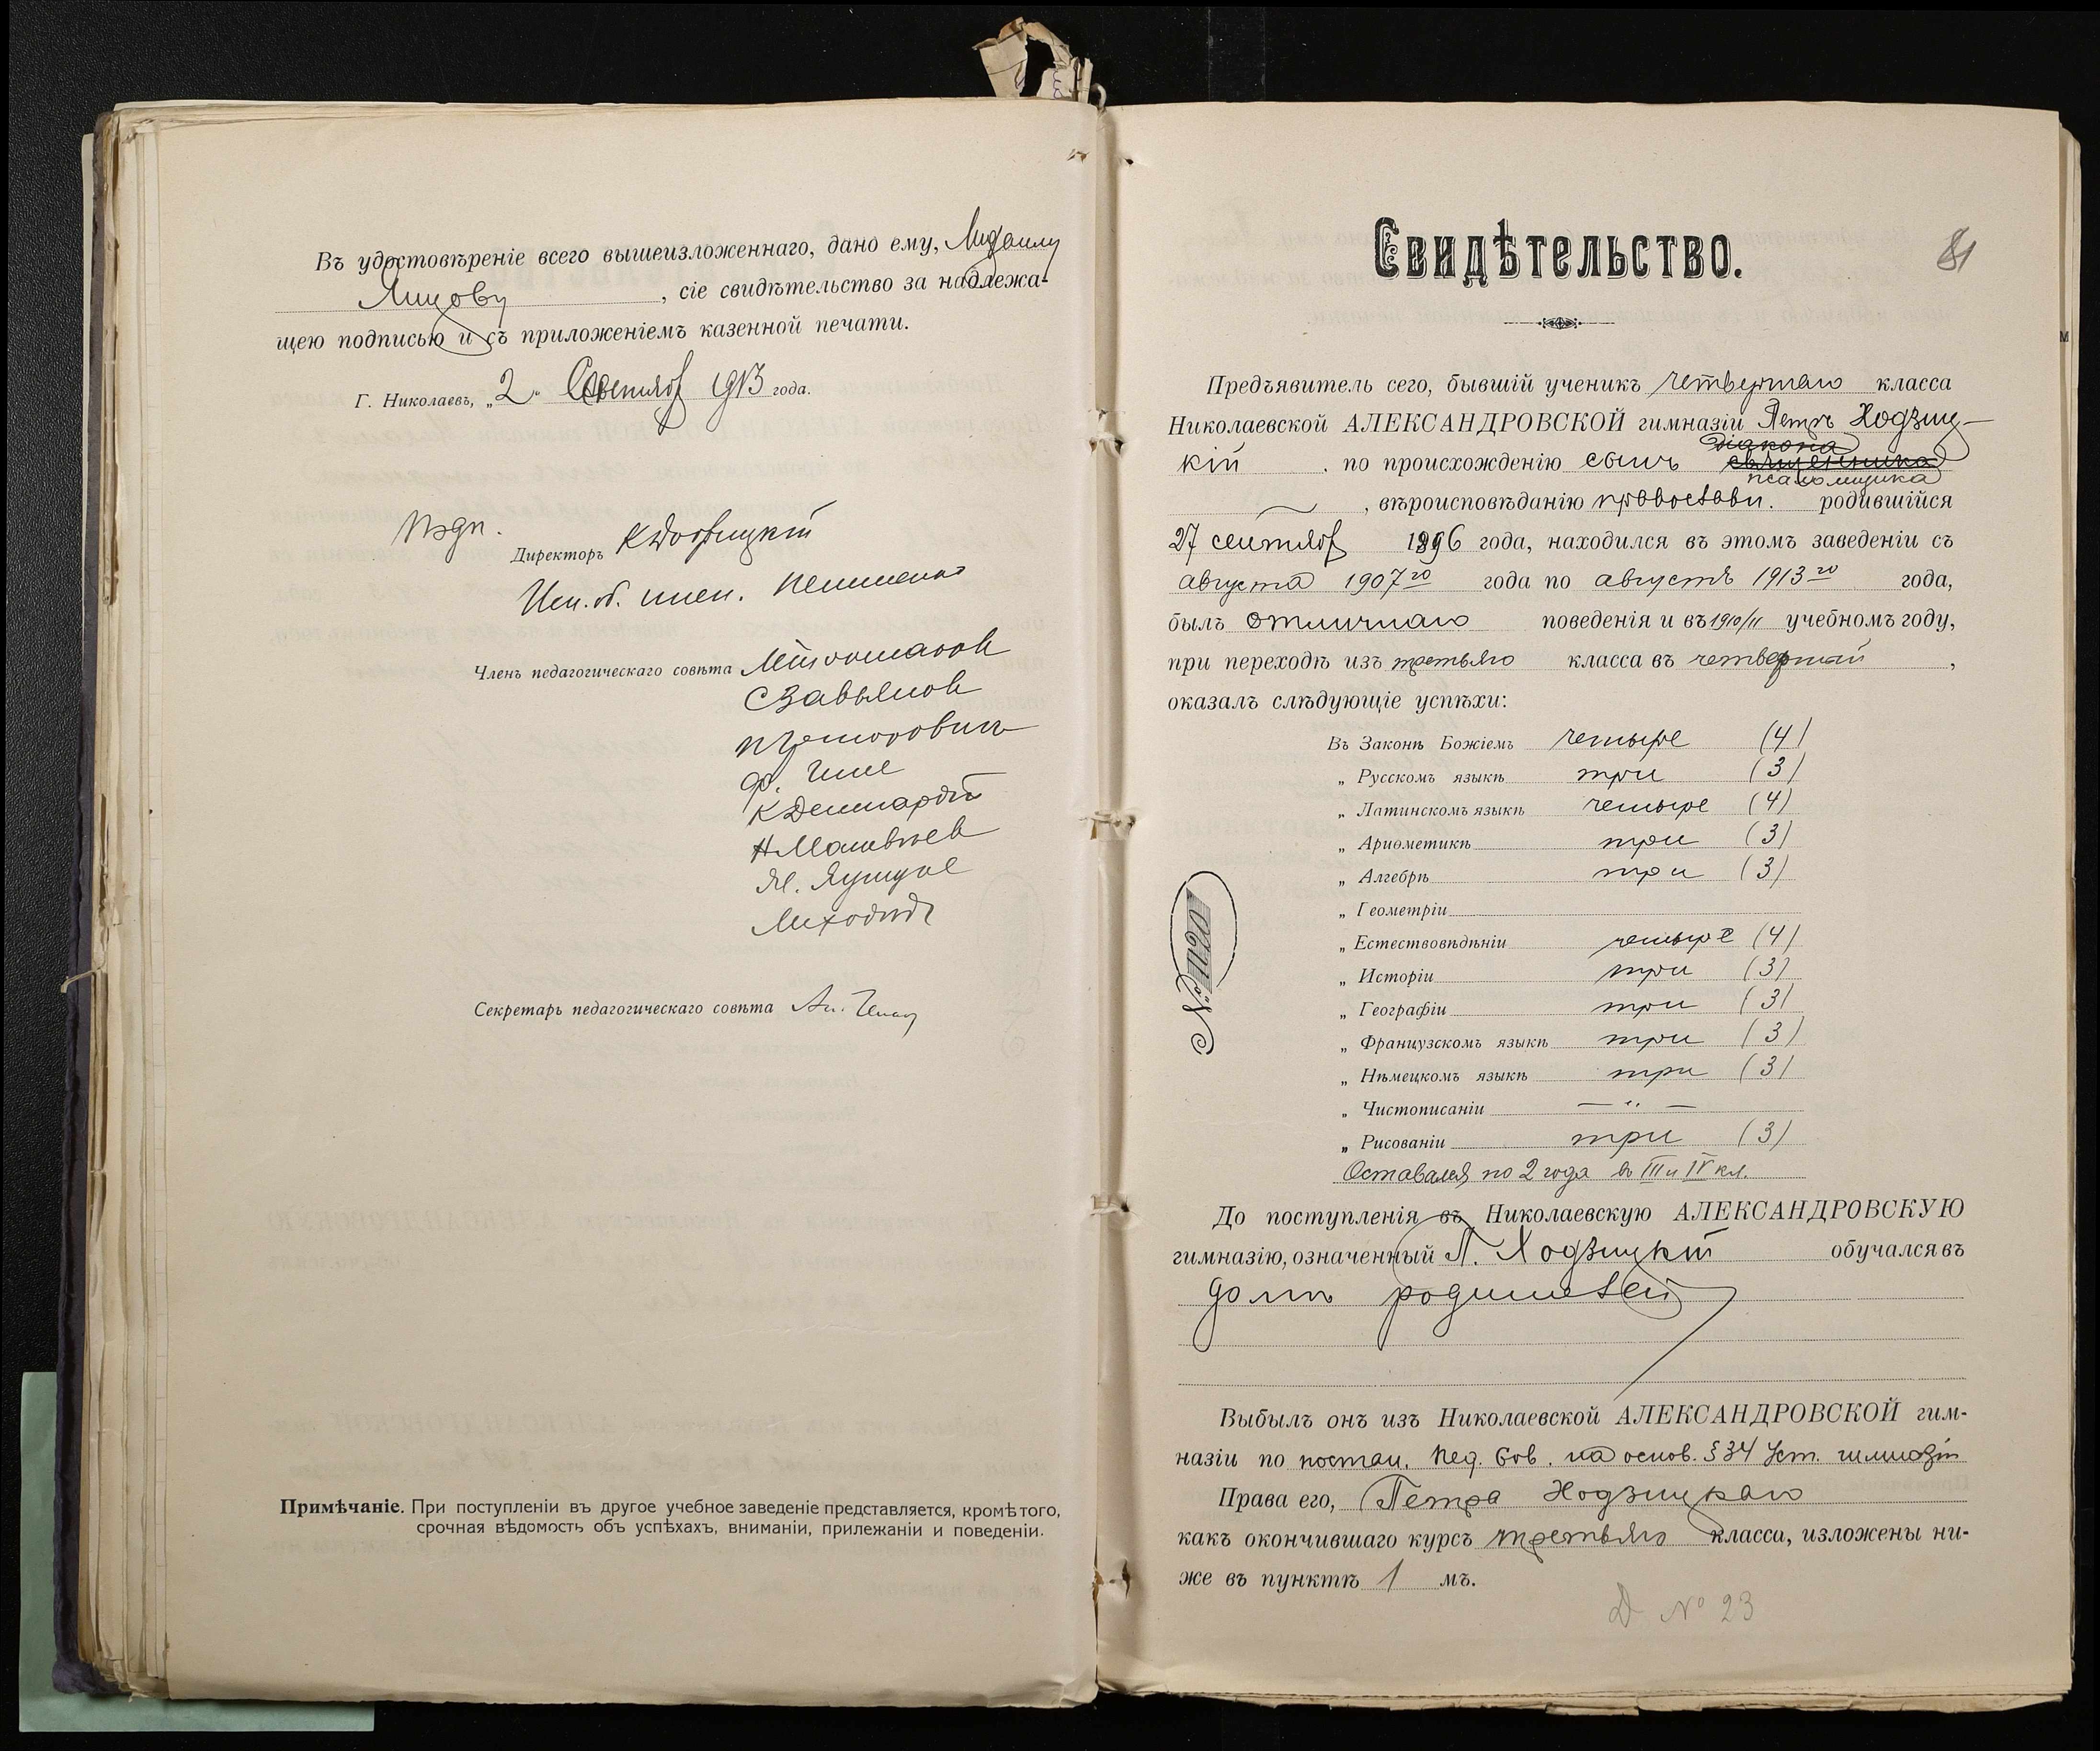 Въ удостовѣреніе всего вышеизложеннаго, дано ему, Михаилу
Яицову, сіе свидѣтельство за надлежа-
щею подписью и съ приложеніемъ казенной печати.
Г. Николаевъ, „2" Сентября 1913 года.
Подп.
Директоръ
Исп. об. инсп.
Членъ педагогическаго совѣта
С Завьялов
К Деннардтъ
Н Матвѣев
Секретарь педагогическаго совѣта
Примѣчаніе. При поступленіи въ другое учебное заведеніе представляется, кромѣ того,
срочная вѣдомость объ успѣхахъ, вниманіи, прилежаніи и поведеніи.
Свидѣтельство.
81
Предъявитель сего, бывшій ученикъ четвертаго класса
Николаевской АЛЕКСАНДРОВСКОЙ гимназіи Петръ Ходзиц-
діакона
кій, по происхожденію сынъ священника
псаломщика
, вѣроисповѣданію православн. родившійся
27 сентября 1896 года, находился въ этомъ заведеніи съ
августа 1907 го года по августъ 1913 го года,
былъ отличнаго поведенія и въ 1910/11 учебномъ году,
при переходѣ изъ третьяго класса въ четвертый,
оказалъ слѣдующіе успѣхи:
Въ Законѣ Божіемъ четыре (4)
„ Русскомъ языкѣ три (3)
„ Латинскомъ языкѣ четыре (4)
„ Ариѳметикѣ три (3)
„ Алгебрѣ три (3)
„ Геометріи
„ Естествовѣдѣніи четыре (4)
„ Исторіи три (3)
„ Географіи три (3)
„ Французскомъ языкѣ три (3)
„ Нѣмецкомъ языкѣ три (3)
„ Чистописаніи — „ —
„ Рисованіи три (3)
Оставался по 2 года в III и IV кл.
№
До поступленія въ Николаевскую АЛЕКСАНДРОВСКУЮ
гимназію, означенный П. Ходзицкій обучался въ
домѣ родителей
Выбылъ онъ изъ Николаевской АЛЕКСАНДРОВСКОЙ гим-
назіи по постан. Пед. Сов. на основ. § 34 Уст. гимназій
Права его, Петра Ходзицкаго
какъ окончившаго курсъ третьяго класса, изложены ни-
же въ пунктѣ 1 мъ.
Д № 23